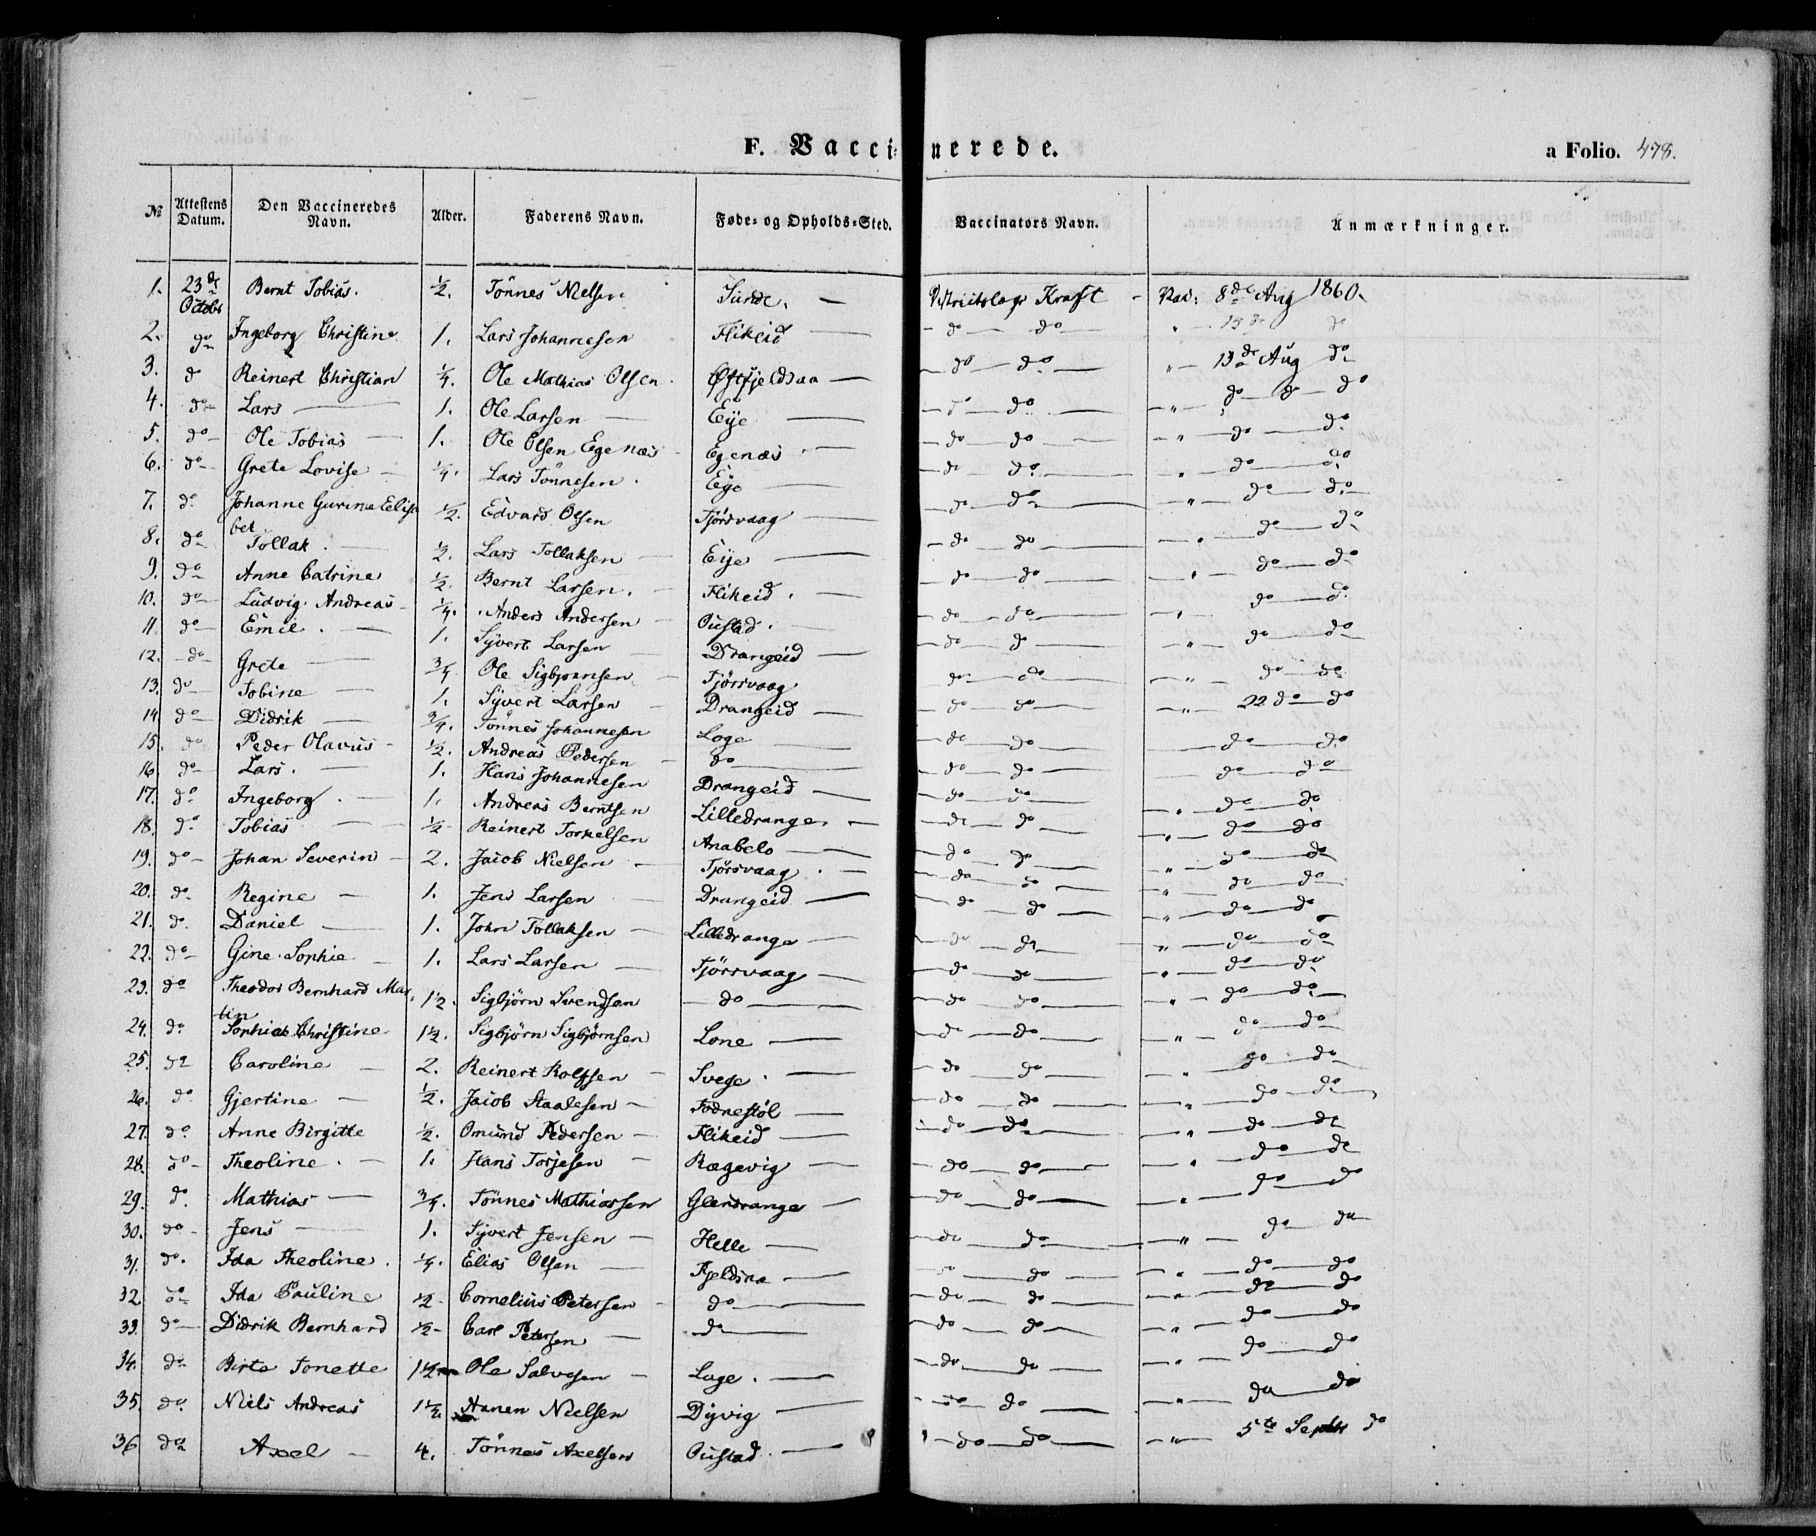 F. Vaccinerede.
a Folio. 478.
№ | Attestens Datum. | Den Vaccineredes Navn. | Alder. | Faderens Navn. | Føde- og Opholds-Sted. | Vaccinators Navn. | Anmærkninger.
1. | 23de Octobr | Bernt Tobias. | ½. | Tönnes Nielsen | Sunde. — | Kraft | Vac: 8de Aug 1860.
2. | do | Ingeborg Christine | 1. | Lars Johannesen | Flikeid — | do do | " 13de do
3. | do | Reinert Christian | ¼. | Ole Mathias Olsen. | Østfjeldsaa — | do do | " 13de Aug do
4. | do | Lars — | 1. | Ole Larsen — | Eije — | do do | " do do do
5. | do | Ole Tobias — | 1. | Ole Olsen Egenæs | Egenæs. — | do do | " do do
6. | do | Grete Lovise — | ¼. | Lars Tönnesen. | Eije — | do do | " do do
7. | do | Johanne Gurine Elisabet | ½. | Edvard Olsen | Tjörsvaag — | do do | " do do
8. | do | Tollak. — | ½. | Lars Tollaksen — | Eije — | do do | " do do
9. | do | Anne Catrine | ½. | Bernt Larsen. — | Flikeid. — | do do | " do do
10. | do | Ludvig Andreas | ¼. | Anders Andersen — | Oustad. — | do do | " do do
11. | do | Emil. — | 1. | Syvert Larsen — | Drangeid — | do do | " do do
12. | do | Grete — | ¾ | Ole Sigbjørnsen — | Tjörsvaag | do do | " do do
13. | do | Tobine — | 1. | Syvert Larsen — | Drangeid — | do do | " 22 do do
14. | do | Didrik — | ¾. | Tönnes Johannesen | Loge — | do do | do do
15. | do | Peder Olavus | ½. | Andreas Pedersen — | do — | do do | do do
16. | do | Lars. — | 1. | Hans Johannesen | Drangeid — | do do | " do do
17. | do | Ingeborg. — | 1. | Andreas Berntsen | Lilledrange. — | do do | " do do
18. | do | Tobias — | ½ | Reinert Torkelsen | Anabelo — | do do | " do do
19. | do | Johan Severin — | 2. | Jacob Nielsen — | Tjörsvaag. — | do do | " do do
20. | do | Regine — | 1. | Jens Larsen — | Drangeid — | do do | " do do
21. | do | Daniel — | 1. | John Tollaksen — | Lilledrange — | do do | " do do
22. | do | Gine Sophie — | 1. | Lars Larsen — | Tjörsvaag — | do do | " do do
23. | do | Theodor Bernhard Martin | 1½. | Sigbjörn Svendsen | — do — | do do | " do do
24. | do | Sophie Christine | 1½. | Sigbjörn Sigbjörnsen | Lone — | do do | " do do
25. | do | Caroline — | 2. | Reinert Rolfsen — | Svege. — | do do | " do do
26. | do | Gjertine — | ½. | Jacob Staalesen — | Fodnestöl — | do do | " do do
27. | do | Anne Birgitte | ½. | Omund Pedersen — | Flikeid — | do do | " do do
28. | do | Theoline. — | 1. | Hans Torjesen — | Rægevig — | do do | " do do
29. | do | Mathias — | ¾. | Tönnes Mathiassen | Glendrange — | do do | " do do
30. | do | Jens — | 1. | Syvert Jensen — | Helle — | do do | " do do
31. | do. | Ida Theoline. | ¼. | Elias Olsen — | Fjeldsaa — | do do | " do do
32 | do | Ida Pauline | ½ | Cornelius Petersen — | do — | do do | " do do
33. | do | Didrik Bernhard | ½ | Carl Petersen — | do — | do do | " do do
34. | do | Birte Tonette | 1½ | Ole Salvesen — | Loge. — | do do | " do do
35. | do | Niels Andreas | 1½. | Hanen Nielsen | Dyvig — | do do | " do do
36 | do | Axel — | 4. | Tönnes Axelsen | Oustad. — | do do | " 5te Septbr do